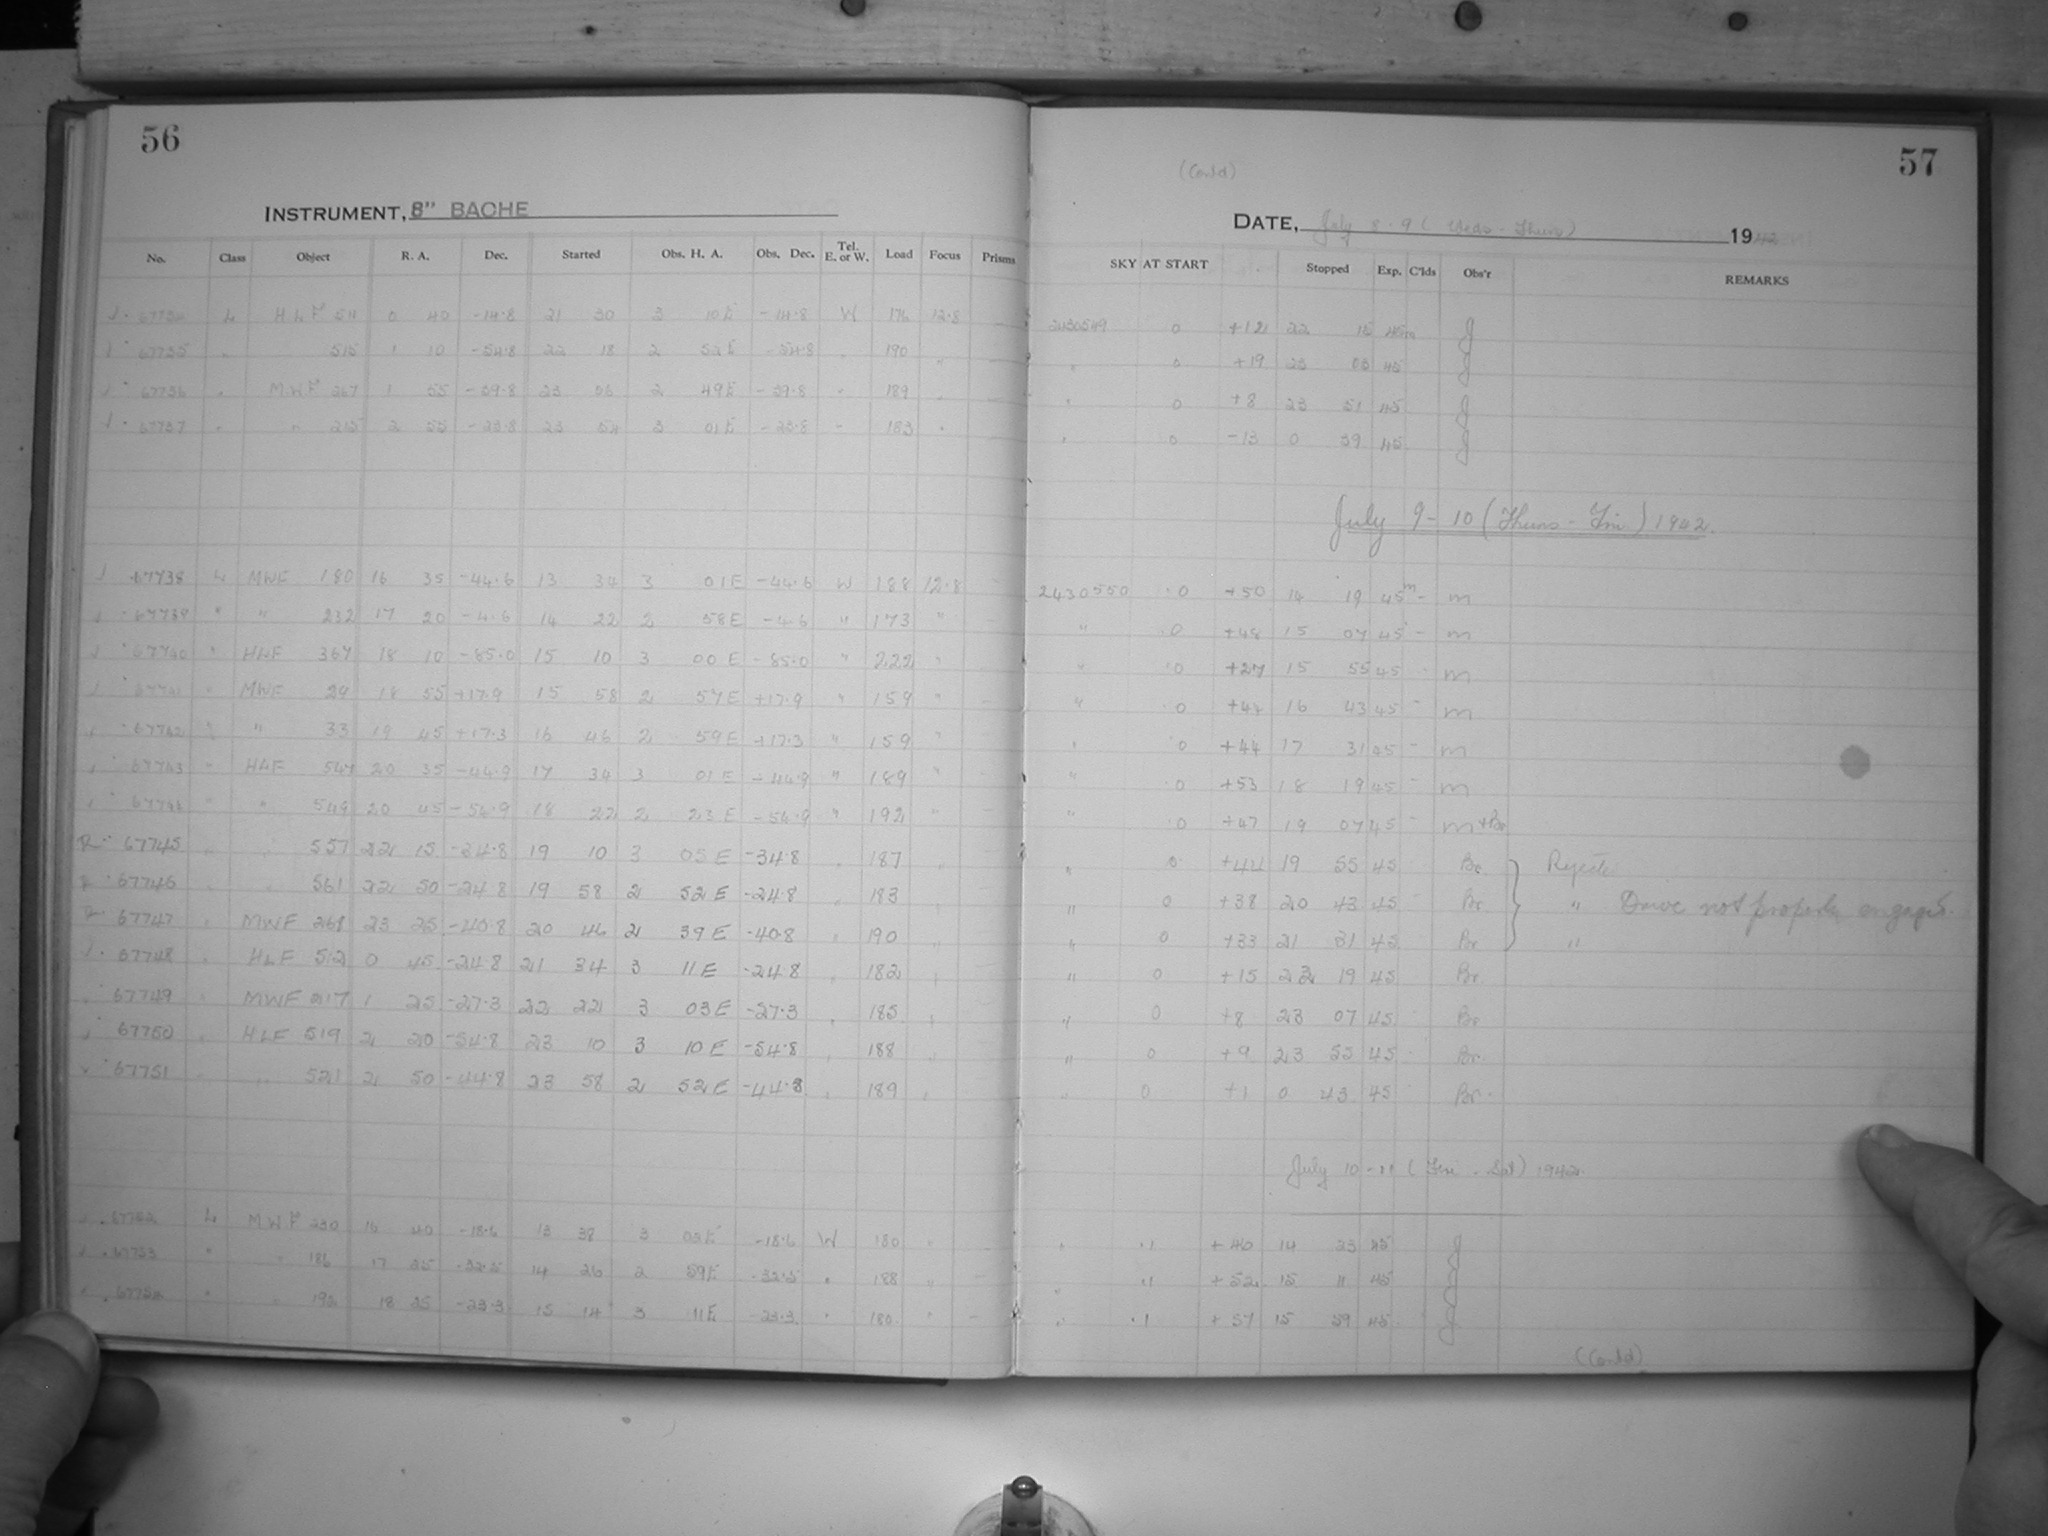 56
INSTRUMENT, 8" BACHE
No. Class Object R. A. Dec. Started Obs. H. A. Obs. Dec. Tel. E. or W. Load Focus Prisms
67734 L HLF 511 0 40 -14.8 21 30 3 10E -14.8 W 176 12.8
67735 515 1 10 -54.8 22 18 2 52E -54.8 190
67736 MWF 267 1 55 -39.8 23 06 2 49E -39.8 " 189
67737 " 2 55 -23.8 23 54 3 01E -23.8 " 183
67738 L MWF 180 16 35 -44.6 13 34 3 01E -44.6 W 188 12.8
67739 " " 232 17 20 -4.6 14 22 2 58E -4.6 " 173 "
67740 " HLF 367 18 10 -85.0 15 10 3 00E -85.0 " 222 "
67741 " MWF 29 18 55 +17.9 15 58 2 57E +17.9 " 159 "
67742 " " 33 19 45 +17.3 16 46 2 59E +17.3 " 159 "
67743 " HLF 547 20 35 -44.9 17 34 3 01E -44.9 " 189 "
67744 " " 549 20 45 -54.9 18 22 2 23E -54.9 " 192 "
R 67745 " " 557 22 15 -34.8 19 10 3 05E -34.8 " 187 "
R 67746 " " 561 22 50 -24.8 19 58 2 52E -24.8 " 183 "
R 67747 " MWF 268 23 25 -40.8 20 46 2 39E -40.8 " 190 "
67748 " HLF 512 0 45 -24.8 21 34 3 11E -24.8 " 182 "
67749 " MWF 217 1 25 -27.3 22 22 3 03E -27.3 " 185 "
67750 " HLF 519 2 20 -54.8 23 10 3 10E -54.8 " 188 "
67751 " " 521 2 50 -44.8 23 58 2 52E -44.8 " 189 "
67752 L MWF 230 16 40 -18.6 13 38 3 03E -18.6 W 180 "
67753 " " 186 17 25 -32.5 14 26 2 59E -32.5 " 188 "
67754 " " 192 18 25 -23.3 15 14 3 11E -23.3 " 180 "
57
(Contd)
DATE, July 8-9 (Weds - Thurs) 1942
SKY AT START Stopped Exp. C'lds Obs'r REMARKS
2430549 0 +12 22 15 45m J
" 0 +19 23 03 45 J
" 0 +8 23 51 45 J
" 0 -13 0 39 45 J
July 9-10 (Thurs - Fri) 1942.
2430550 0 +50 14 19 45m - m
" 0 +48 15 07 45 - m
" 0 +27 15 55 45 - m
" 0 +44 16 43 45 - m
" 0 +44 17 31 45 - m
" 0 +53 18 19 45 - m
" 0 +47 19 07 45 - m+Br
" 0 +44 19 55 45 Br Rejected
" 0 +38 20 43 45 Br " Drive not properly engaged.
" 0 +33 21 31 45 Br "
" 0 +15 22 19 45 Br
" 0 +8 23 07 45 Br
" 0 +9 23 55 45 Br
" 0 +1 0 43 45 Br
July 10-11 (Fri - Sat) 1942
" .1 +40 14 23 45 J
" " +52 15 11 45 J
" .1 +57 15 59 45 J
(Contd)